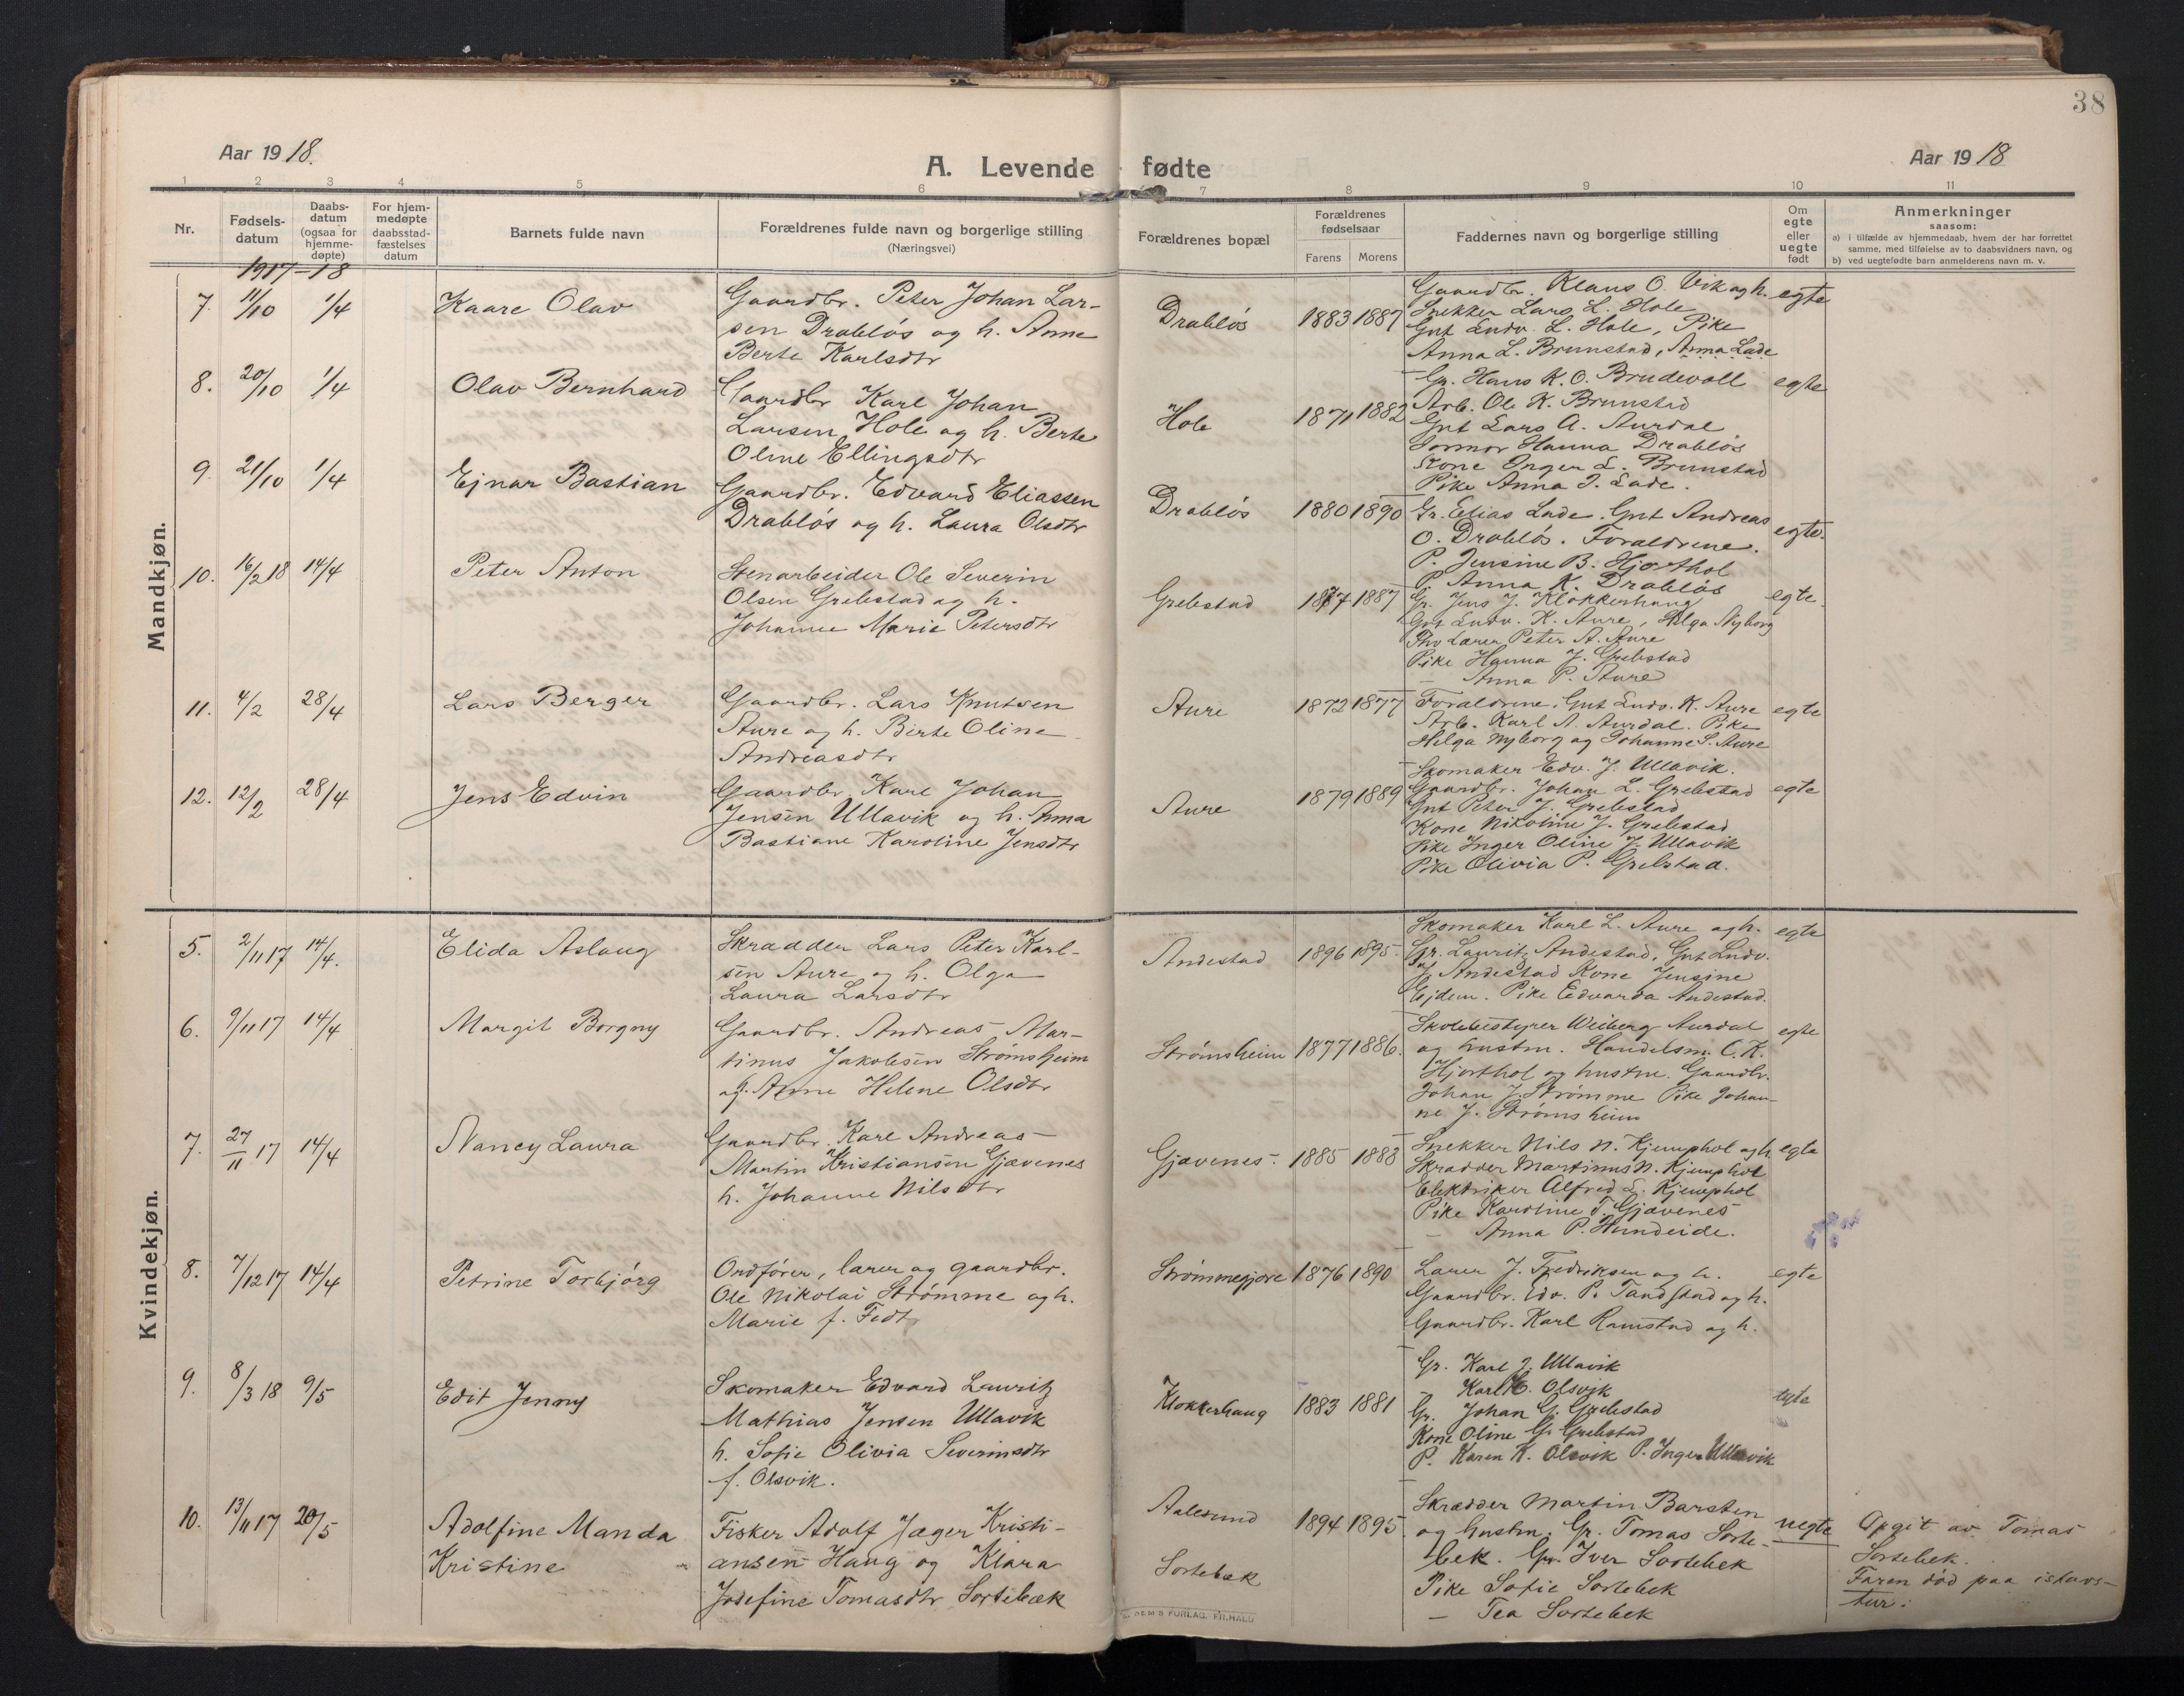 38
Aar 1918.
A. Levende fødte
Aar 1918
1 2 3 4 5 6 7 8 9 10 11
Nr.
Fødsels-
datum
Daabs-
datum
(ogsaa for
hjemme-
døpte)
For hjem-
medøpte
daabsstad-
fæstelses
datum
Barnets fulde navn
Forældrenes fulde navn og borgerlige stilling
(Næringsvei)
Forældrenes bopæl
Forældrenes
fødselsaar
Farens Morens
Faddernes navn og borgerlige stilling
Om
egte
eller
uegte
født
Anmerkninger
saasom:
a) i tilfælde av hjemmedaab, hvem der har forrettet
samme, med tilføielse av to daabsvidners navn, og
b) ved uegtefødte barn anmelderens navn m. v.
Mandkjøn.
1917-18
7. 11/10 1/4 Kaare Olav
Gaardbr. Peter Johan Lar-
sen Drabløs og h. Anne
Berte Karlsdtr
Drabløs 1883 1887
Gaardbr. Klaus O. Vik og h.
Snekker Lars L. Hole
Gut Ludv. L. Hole, Pike
Anna L. Brunstad, Anna Lade
egte
8. 20/10 1/4 Olav Bernhard
Gaardbr Karl Johan
Larsen Hole og h. Berte
Oline Ellingsdtr
Hole 1871 1882
Gr. Hans K. O. Brudevoll
Arb. Ole K. Brunstad
Gut Lars A. Aurdal
Jormor Hanna Drabløs
Kone Inger L. Brunstad
Pike Anna J. Lade.
egte
9. 21/10 1/4 Ejnar Bastian
Gaardbr. Edvard Eliassen
Drabløs og h. Laura Olsdtr
Drabløs 1880 1890
Gr. Elias Lade. Gut Andreas
O. Drabløs. Forældrene.
P. Jensine B. Hjorthol
P. Anna K. Drabløs
egte.
10. 16/2 18 14/4 Peter Anton
Stenarbeider Ole Severin
Olsen Grebstad og h.
Johanne Marie Petersdtr
Grebstad 1877 1887
Gr. Jens J. Klokkerhaug
Gut Ludv. K. Aure, Helga Nyborg
Lærer Peter A. Aure
Pike Hanna J. Grebstad
— Anna P. Aure
egte.
11. 4/2 28/4 Lars Berger
Gaardbr. Lars Knutsen
Aure og h. Berte Oline
Andreasdtr
Aure 1872 1877
Forældrene. Gut Ludv. K. Aure
Arb. Karl A. Aurdal. Pike
Helga Nyborg og Johanne S. Aure
egte
12. 12/2 28/4 Jens Edvin
Gaardbr. Karl Johan
Jensen Ullavik og h. Anna
Bastiane Karoline Jensdtr
Aure 1879 1889
Skomaker Edv. J. Ullavik.
Gaardbr. Johan L. Grebstad
Gut Peter J. Grebstad
Kone Nikoline J. Grebstad
Pike Inger Oline J. Ullavik
Pike Olivia P. Grebstad.
egte
Kvindekjøn.
5. 2/11 17 14/4. Elida Aslaug
Skrædder Lars Peter Karl-
sen Aure og h. Olga
Laura Larsdtr
Andestad 1896 1895.
Skomaker Karl L. Aure og h.
Gr. Lauritz Andestad, Gut Ludv.
J. Andestad Kone Jensine
Ejdem. Pike Edvarda Andestad.
egte
6. 9/11 17 14/4 Margit Borgny
Gaardbr. Andreas Mar-
tinus Jakobsen Strømsheim
og. Anne Helene Olsdtr
Strømsheim 1877 1886.
Skolebestyrer Weiberg Aurdal
og hustru. Handelsm. C. K.
Hjorthol og hustru. Gaardbr.
Johan J. Strømme Pike Johan-
ne J. Strømsheim
egte
7. 27/11 17 14/4 Nancy Laura
Gaardbr. Karl Andreas
Martin Kristiansen Gjævenes
h. Johanne Nilsdtr
Gjævenes. 1885 1883
Snekker Nils N. Kjemphol og h
Skrædder Martinus N. Kjemphol
Elektriker Alfred L. Kjemphol
Pike Karoline T. Gjævenes
— Anna P. Hundeide.
egte
8. 7/12 17 14/4 Petrine Torbjørg
Ordfører, lærer og gaardbr.
Ole Nikolai Strømme og h.
Marie f. Fedt
Strømmegjære 1876 1890
Lærer J. Fredriksen og h.
Gaardbr. Edv. P. Tandstad og h.
Gaardbr. Karl Ramstad og h.
egte
9. 8/3 18 9/5 Edit Jenny
Skomaker Edvard Lauritz
Mathias Jensen Ullavik
h. Sofie Olivia Severinsdtr
f. Olsvik.
Klokkerhaug 1883 1881
Gr. Karl J. Ullavik
Karl K. Olsvik
Gr. Johan G. Grebstad
Kone Oline G. Grebstad
P. Karen K. Olsvik P. Inger Ullavik
egte
10. 13/11 17 20/5 Adolfine Manda
Kristine
Fisker Adolf Jæger Kristi-
ansen Haug og Klara
Josefine Tomasdtr Sortebæk
Aalesund
Sortebæk
1894 1895
Skrædder Martin Barsten
og hustru. Gr. Tomas Sorte-
bek. Gr. Iver Sortebek
Pike Sofie Sortebek
— Tea Sortebek
uegte
Opgit av Tomas
Sortebek.
Faren død paa ishavs-
tur.
DEM'S FORLAG, FR.HALD